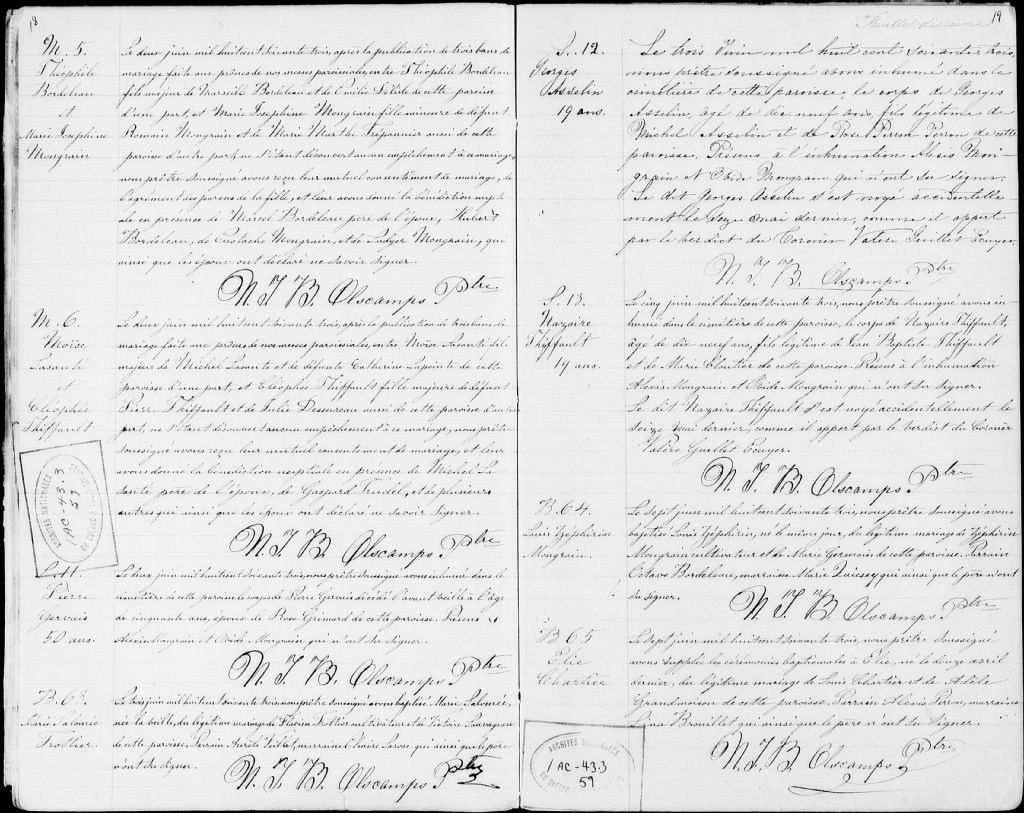 18
M. 5.
Théophile
Bordeleau
et
Marie Josephine
Mongrain
Le deux juin mil huit cent soixante trois, après la publication de trois bans de
mariage faite aux prônes de nos messes paroissiales, entre Théophile Bordeleau
fils majeur de Marseille Bordeleau et de Emilie de cette paroisse
d'une part, et Marie Josephine Mongrain fille mineure de défunt
Romain Mongrain et de Marie Marthe Trépannier aussi de cette
paroisse d'autre part, ne s'étant découvert aucun empêchement à ce mariage,
nous prêtre soussigné avons reçu leur mutuel consentement de mariage, de
l'agrément des parens de la fille, et leur avons donné la bénédiction nupti-
ale en présence de Marcel Bordeleau père de l'époux, Hubert
Bordeleau, de Eustache Mongrain, et de Ludger Mongrain, qui
ainsi que les époux ont déclaré ne savoir signer.
N. T. B. Olscamps Ptre
M. 6.
Moïse
Lasanté
et
Cléophée
Thiffault
Le deux juin mil huit cent soixante trois, après la publication de trois bans de
mariage faite aux prônes de nos messes paroissiales, entre Moïse Lasanté fils
majeur de Michel Lasanté et de défunte Catherine Lapointe de cette
paroisse d'une part, et Cléophée Thiffault fille majeure de défunt
Pierre Thiffault et de Julie Dessureau aussi de cette paroisse d'autre
part, ne s'étant découvert aucun empêchement à ce mariage, nous prêtre
soussigné avons reçu leur mutuel consentement de mariage, et leur
avons donné la bénédiction nuptiale en présence de Michel La-
santé père de l'époux, de Gaspard Trudel, et de plusieurs
autres qui ainsi que les époux ont déclaré ne savoir signer.
N. T. B. Olscamps Ptre
ARCHIVES NATIONALES
AC-43.3
59
S. 11.
Pierre
Gervais
50 ans.
Le deux juin mil huit cent soixante trois, nous prêtre soussigné avons inhumé dans le
cimetière de cette paroisse le corps de Pierre Gervais décédé l'avant veille à l'âge
de cinquante ans, époux de Rose Grimard de cette paroisse. Présens
Alexis Mongrain et Obide Mongrain qui n'ont su signer.
N. T. B. Olscamps Ptre
B. 63.
Marie Salomée
Trottier.
Le trois juin mil huit cent soixante trois, nous prêtre soussigné avons baptisé Marie Salomée,
née la veille, du légitime mariage de Flavien Trottier cultivateur et de Victoire Sauvageau
de cette paroisse, Parrain Aurèle Veillet, marraine qui ainsi que le père
n'ont su signer.
N. T. B. Olscamps Ptre
19
S. 12.
Georges
Asselin
19 ans.
Le trois Juin mil huit cent soixante trois,
nous prêtre soussigné avons inhumé dans le
cimetière de cette paroisse, le corps de Georges
Asselin, âgé de dix neuf ans, fils légitime de
Michel Asselin et de Rose Perron Perron de cette
paroisse. Présens à l'inhumation Alexis Mon-
grain et Obide Mongrain qui n'ont su signer.
Le dit Georges Asselin s'est noyé accidentelle-
ment le seize mai dernier, comme il appert
par le verdict du Coronier Valère Guillet Ecuyer.
N. T. B. Olscamps Ptre
S. 13.
Nazaire
Thiffault
19 ans.
Le cinq juin mil huit cent soixante trois, nous prêtre soussigné avons in-
humé dans le cimetière de cette paroisse, le corps de Nazaire Thiffault,
âgé de dix neuf ans, fils légitime de Jean Baptiste Thiffault
et de Marie Cloutier de cette paroisse. Présens à l'inhumation
Alexis Mongrain et Obide Mongrain qui n'ont su signer.
Le dit Nazaire Thiffault s'est noyé accidentellement le
seize mai dernier, comme il appert par le verdict du Coronier
Valère Guillet Ecuyer.
N. T. B. Olscamps Ptre
B 64.
Louis Zéphirin
Mongrain.
Le sept juin mil huit cent soixante trois, nous prêtre soussigné avons
baptisé Louis Zéphirin, né le même jour, du légitime mariage de Zéphirin
Mongrain cultivateur et de Marie Germain de cette paroisse. Parrain
Octave Bordeleau, marraine Marie Quessy qui ainsi que le père n'ont
su signer.
N. T. B. Olscamps Ptre
B 65
Elie
Chartier
Le sept juin mil huit cent soixante trois, nous prêtre soussigné
avons supplée les cérémonies baptismales à Elie, né le douze avril
dernier, du légitime mariage de Louis Chartier et de Adèle
Grandmaison de cette paroisse. Parrain Alexis Perron, marraine
Lina Brouillet qui ainsi que le père n'ont su signer.
N. T. B. Olscamps Ptre
ARCHIVES NATIONALES
AC-43.3
59